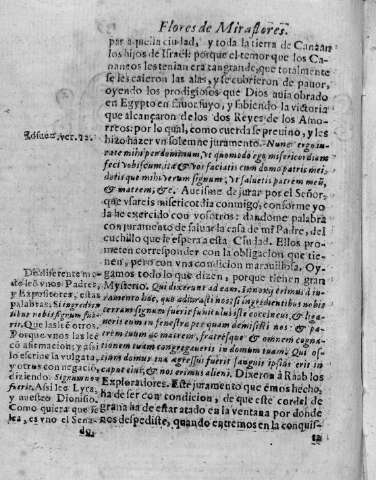 Flores de Miraflores.
par aquella ciudad, y toda la tierra de Canaan
los hijos de Israel: porque el temor que los Ca-
naneos les tenian era tan grande, que totalmente
se les caieron las alas, y se cubrieron de pauor,
oyendo los prodigios que Dios auia obrado
en Egypto en fauor suyo, y sabiendo la victoria
que alcançaron de los dos Reyes de los Amo-
rreos: por lo qual, como cuerda se preuino, y les
hizo hazer vn solemne juramento. Nunc ergo iu-
rate mihi per dominum, vt quomodo ego misericordiam
feci vobiscum, ita & vos faciatis cum domo patris mei,
detis que mihi verum signum, vt saluetis patrem meū,
& matrem, &c. Aueisme de jurar por el Señor,
que vsareis misericordia conmigo, conforme yo
la he exercido con vosotros: dandome palabra
con juramento de saluar la casa de mi Padre, del
cuchillo que le espera a esta Ciudad. Ellos pro-
meten corresponder con la obligacion que tie-
nen, pero con vna condicion marauillosa, Oy-
gamos todo lo que dizen, porque tienen gran
Mysterio. Qui dixerunt ad eam. Innoxij erimus à iu-
ramento hoc, quo adiurasti nos: si ingredientibus nobis
terram signum fuerit funiculus iste coccineus, & liga-
ueris eum in fenestra per quam demisisti nos: & pa-
trem tuum ac matrem, fratresque & omnem cogna-
tionem tuam congregaueris in domum tuam. Qui os-
tium domus tuæ egressus fuerit sanguis ipsius erit in
caput eius, & nos erimus alieni. Dixeron à Raab los
Exploradores. Este juramento que emos hecho,
ha de ser con condicion, de que este cordel de
grana ha de estar atado en la ventana por donde
nos despediste, quando entremos en la conquis-
ta
Iosue 2. ver. 12.
De diferente mo-
do leē vnos Padres,
y Expositores, estas
palabras: Si ingredien-
tibus nobis signum fue-
rit. Que las leē otros.
Porque vnos las leē
có afirmacion; y asi
lo escriue la vulgata,
y otros con negació,
diziendo. Signum non
fuerit. Asi leo Lyra,
y nuestro Dionisio.
Como quiera que se
lea, es vno el Sena-
do,